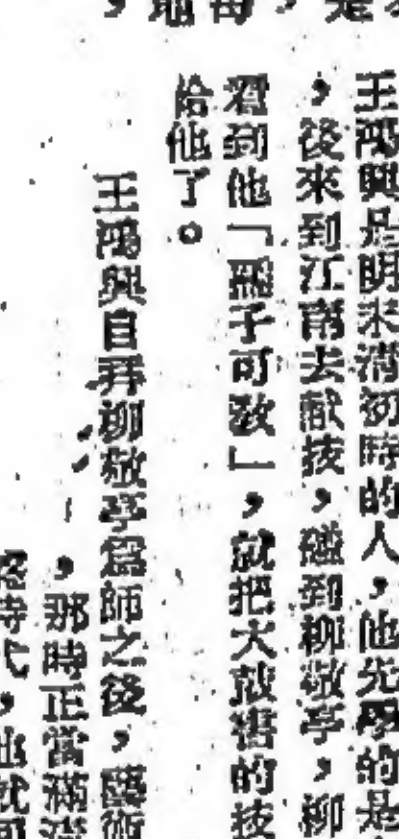 ，地每，是
王鴻興是明末清初時的人，他先學的是
，後來到江南去獻技，碰到柳敬亭，柳
看到他「孺子可教」，就把大鼓書的技
給他了。
王鴻興自拜柳敬亭爲師之後，藝術
，那時正當滿清
時代，他就